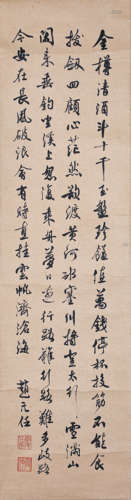 金樽清酒斗十千玉盤珍饈值萬錢停杯投筯不能食
拔劍四顧心茫然欲渡黃河冰塞川將登太行雪滿山
閑來垂釣坐溪上忽復乘舟夢日邊行路難行路難多歧路
今安在長風破浪會有時直挂雲帆濟滄海
趙元任